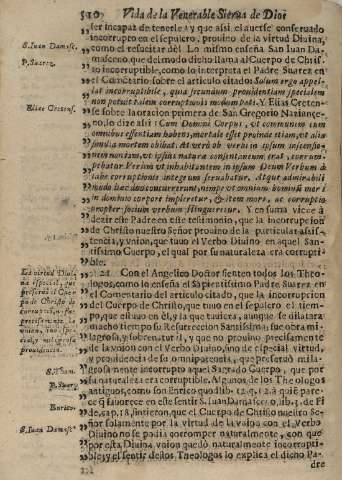 510 Vida de la Venerable Sierva de Dios
ser incapaz de tenerle, y que assi el averse conservado
incorrupto en el sepulcro, provino de la virtud Divina,
S. Iuan Damasc.
como el resucitar del. Lo mismo enseña San Iuan Da-
masceno, que del modo dicho llama al Cuerpo de Chris-
P. Suarez.
to incorruptible, como lo interpreta el Padre Suarez en
el Comentario sobre el articulo citado: Solum ergo appel-
lat incorruptibile, quia secundum providentiam specialem
non potuit talem corruptionis modum pati. Y Elias Creten-
Elias Cretens.
se sobre la oracion primera de San Gregorio Naziançe-
no, lo dize assi: Cum Domini Corpus, ut commune cum
omnibus essentiam habens, mortale esset proinde etiam, ut alia
similia mortem obibat. At verò ob verbi in ipsum
ut ipsius natura consentaneum erat,
Verum ut inhabitantem in ipsum Deum Verbum à
labe corruptionis integrum servabatur. Atque admirabili
modo hæc duo concurrerunt, nempe ut omnium hominum more
in domino corpore impiretur, & item more, ac corruptio
propter socium verbum fringueretur. Y en suma viene à
dezir este Padre en este testimonio, que la incorrupcion
de Christo nuestro Señor provino de la particular assis-
tencia, y union, que tuvo el Verbo Divino en aquel San-
tissimo Cuerpo, el qual por su naturaleza era corrupti-
ble.
Con el Angelico Doctor sienten todos los Theo-
logos, como lo enseña el Sapientissimo Padre Suarez en
el Comentario del articulo citado, que la incorrupcion
del Cuerpo de Christo, que tuvo en el sepulcro el tiem-
po, que estuvo en èl, y la que tuviera, aunque se dilatara
mucho tiempo su Resurreccion Santissima, fue obra mi-
lagrosa, y sobrenatural, y que no provino precisamente
de la union con el Verbo Divino, sino de especial virtud,
y providencia de su omnipotencia, que preservò mila-
grosamente incorrupto aquel Sagrado Cuerpo, que por
su naturaleza era corruptible. Algunos de los Theologos
antiguos, como son Enrico quodlib. 12. q. 12. à quiẽ pare-
ce q̃ favorece en este sentir S. Iuan Damasceno, lib. 3. de Fi
de, cap. 28. sintieron, que el Cuerpo de Christo nuestro Se-
ñor solamente por la virtud de la union con el Verbo
Divino no se podia corromper naturalmente, con que
por esta Divina union quedò naturalmente incorrupti-
ble; y el sentir destos Theologos lo explica el dicho Pa-
dre
S. Thom.
P. Suarez.
Enrico.
S. Iuan Damasc.